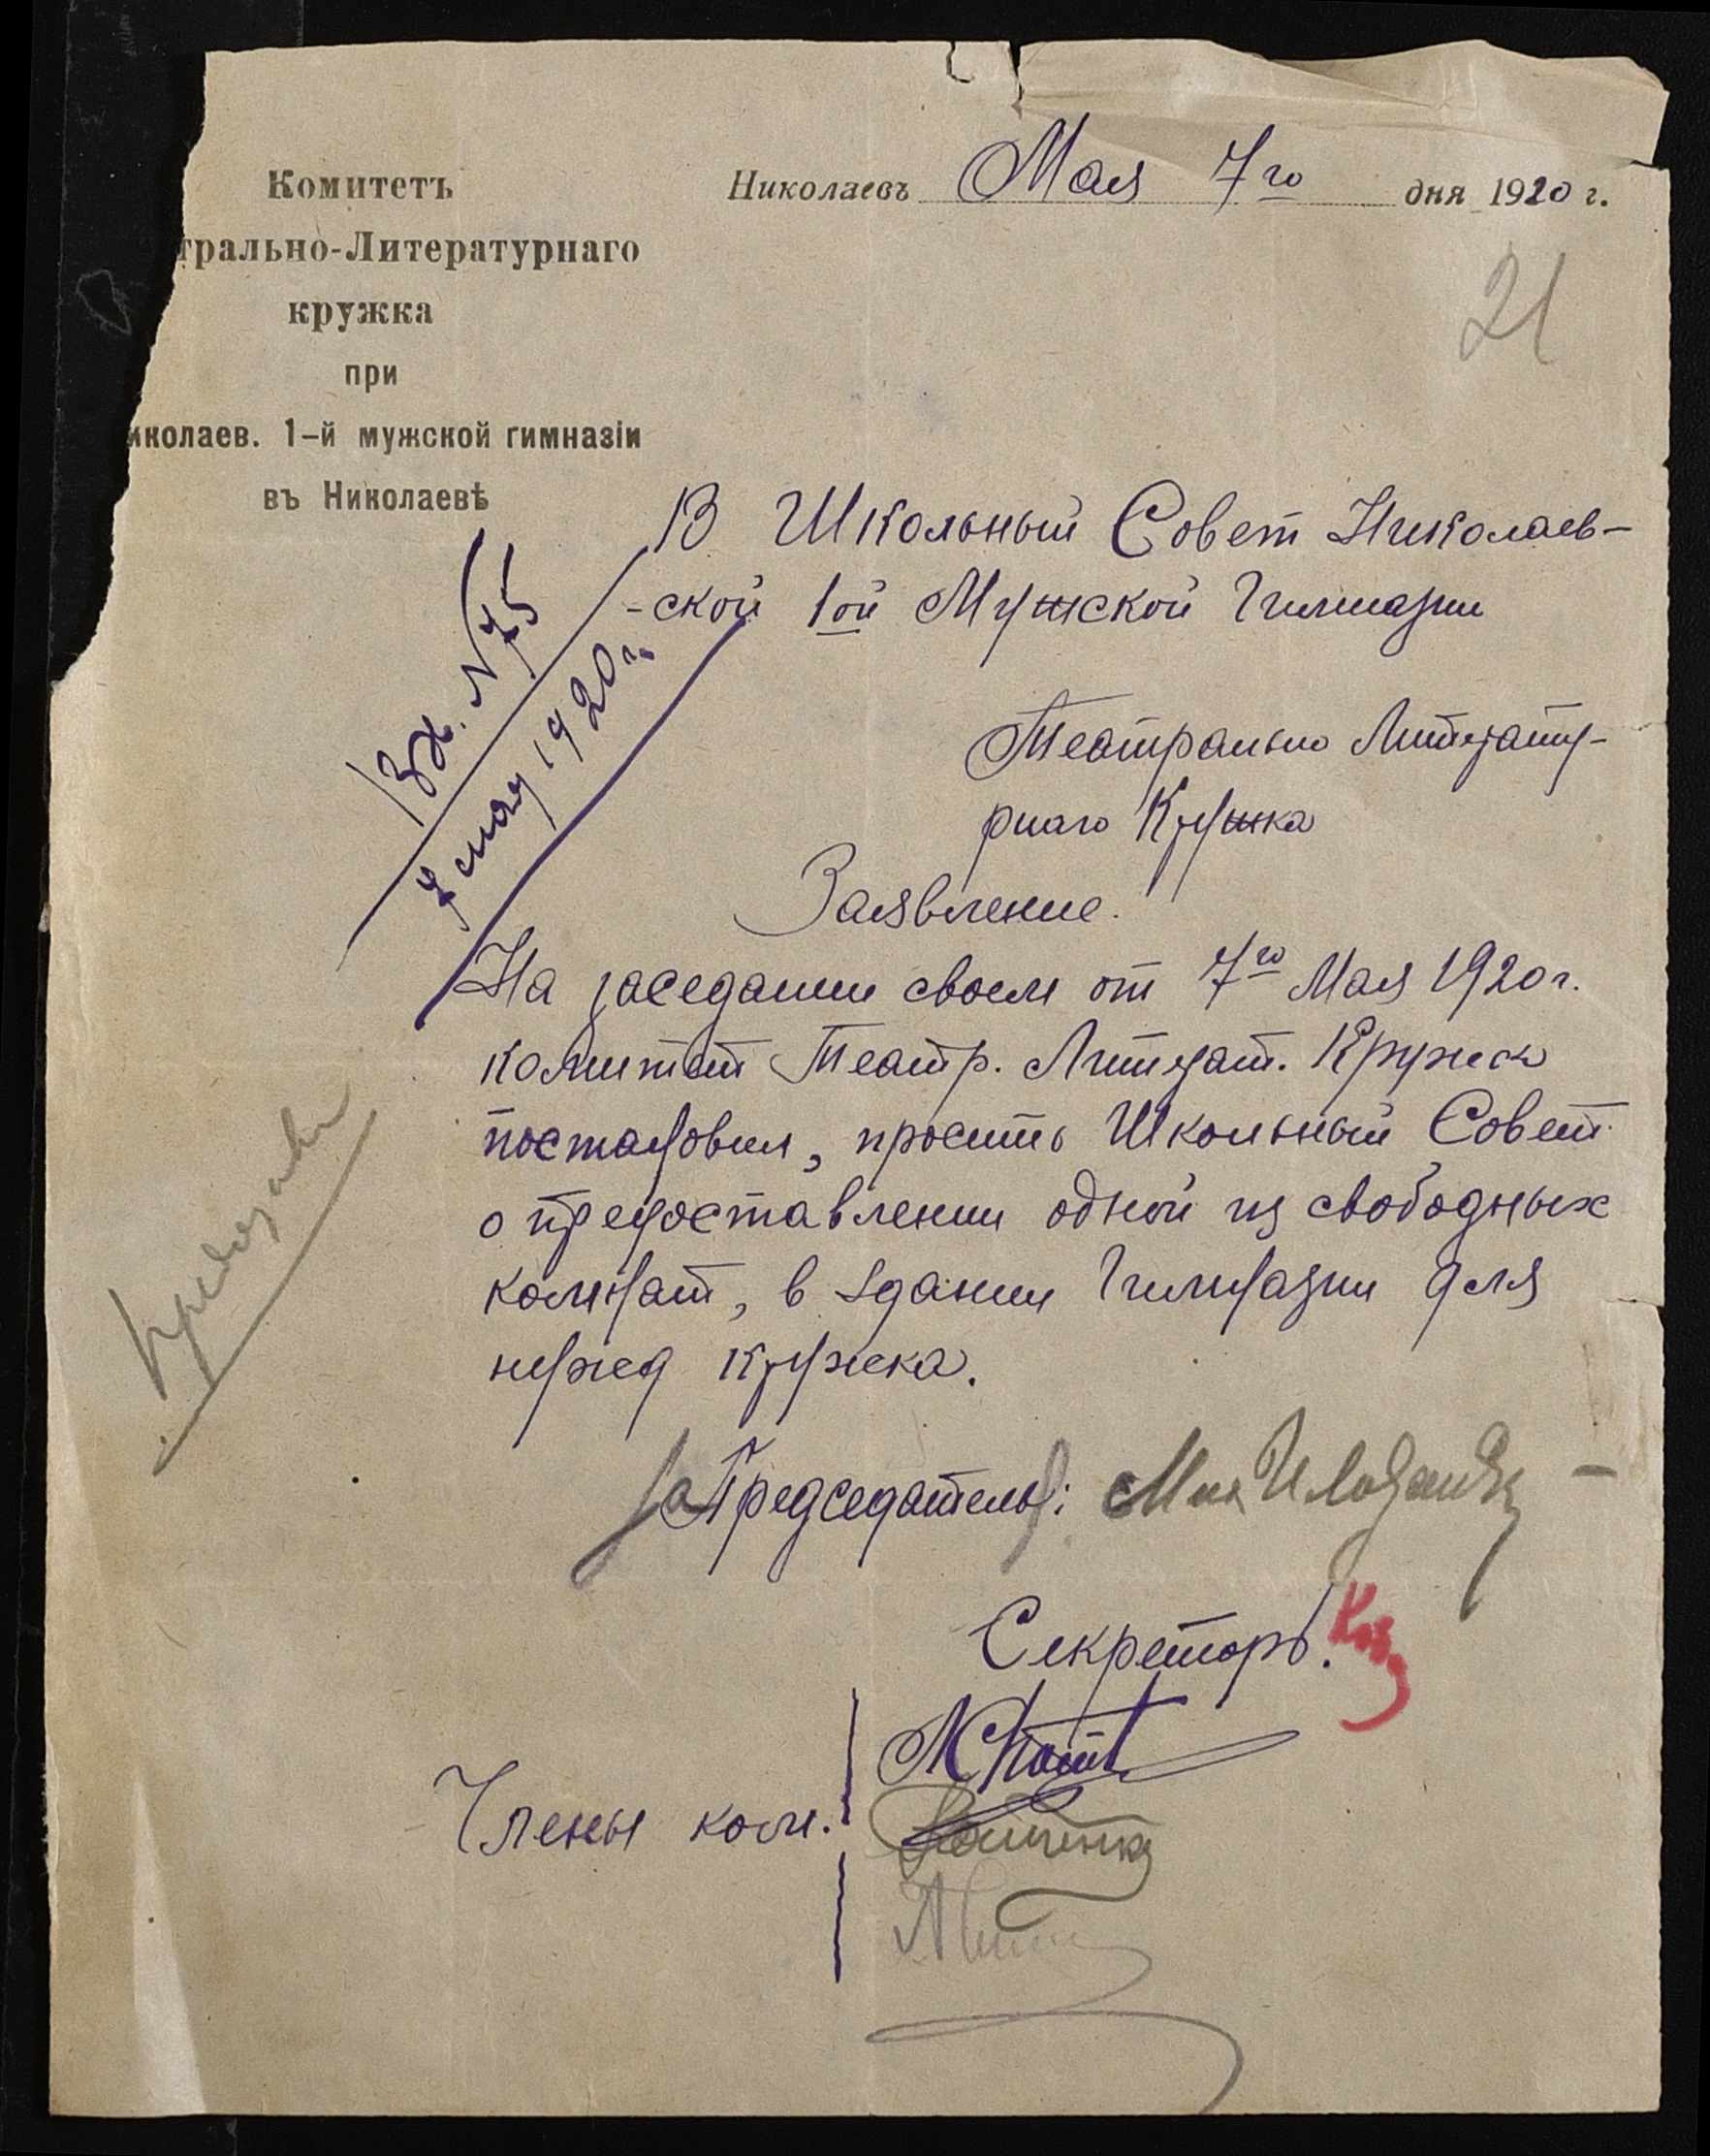 Комитетъ
трально-Литературнаго
кружка
при
иколаев. 1-й мужской гимназіи
въ Николаевѣ
Николаевъ Мая 7го дня 1920 г.
21
Вх. N 75
7 мая 1920 г.
В Школьный Совет Николаев-
-ской 1ой Мужской Гимназии
Театрально Литерату-
рнаго Кружка
Заявление.
На заседании своем от 7го Мая 1920 г.
комитет Театр. Литерат. Кружка
постановил, просить Школьный Совет
о предоставлении одной из свободных
комнат, в здании Гимназии для
нужд кружка.
За Председатель:
Секретарь.
Члены ком.